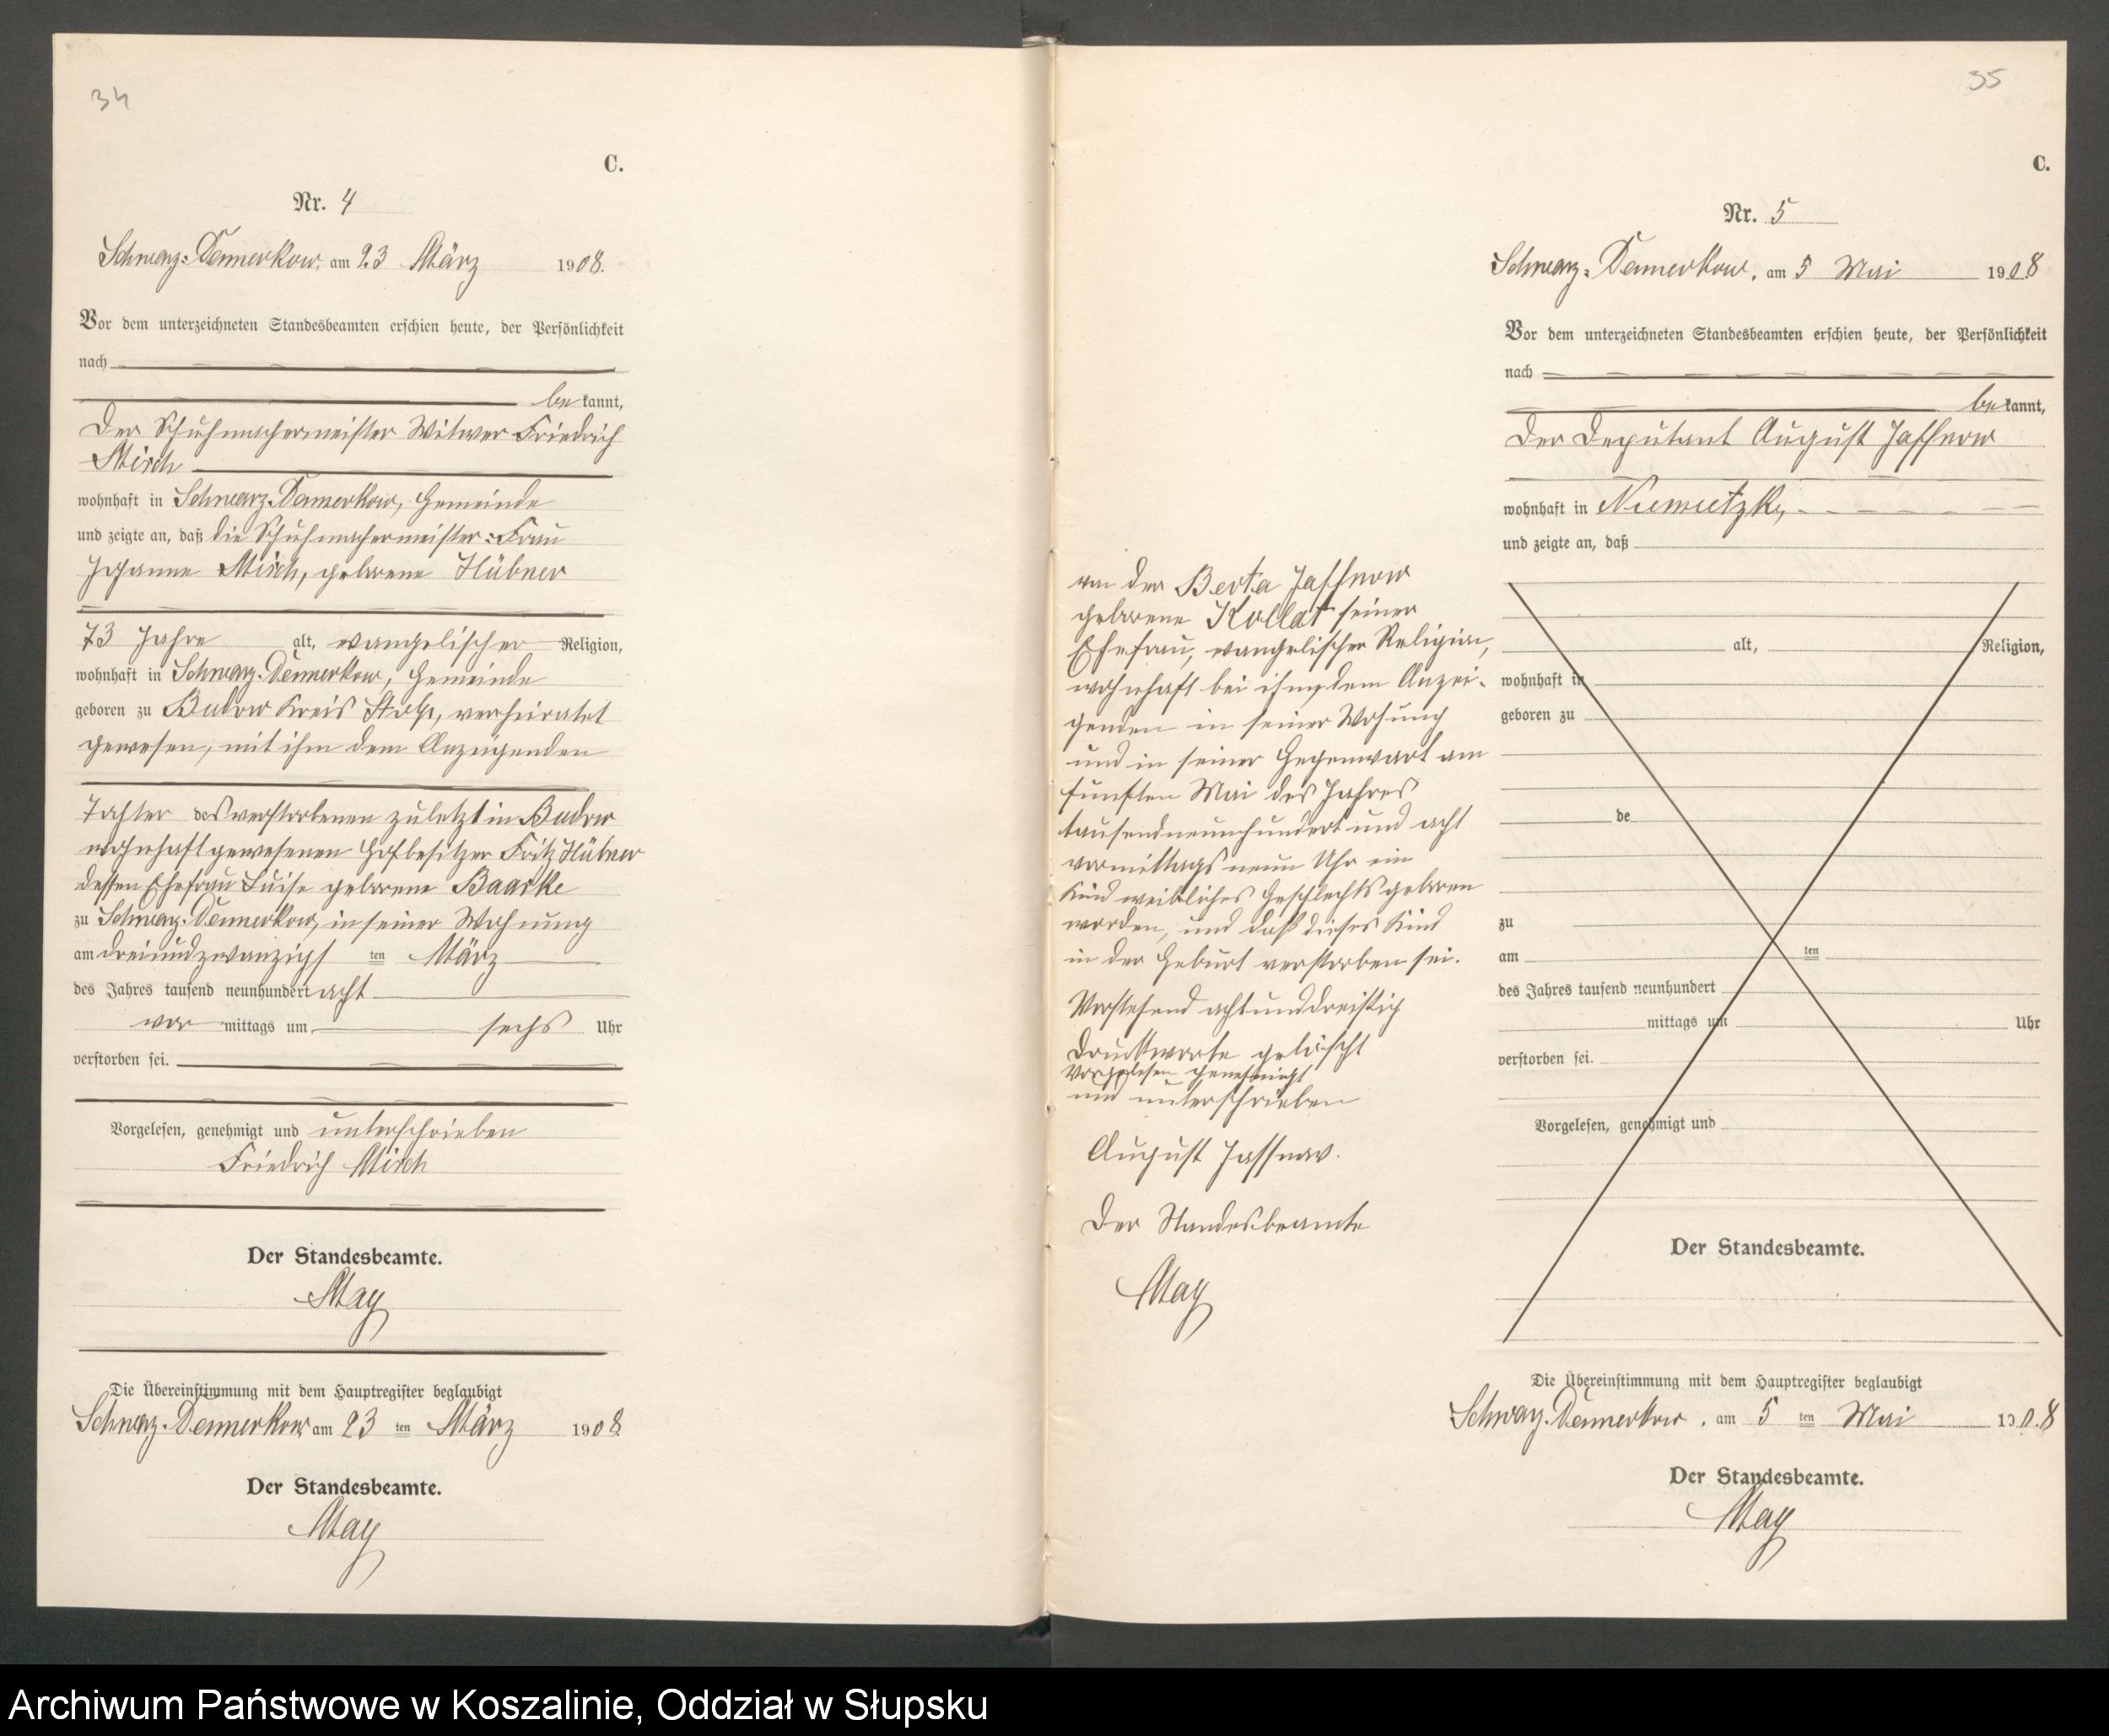 34
C.
Nr. 4
Schwarz-Damerkow, am 23 März 1908.
Vor dem unterzeichneten Standesbeamten erschien heute, der Persönlichkeit
nach
be kannt,
der Schuhmachermeister Witwer Friedrich
Misch
wohnhaft in Schwarz-Damerkow, Gemeinde
und zeigte an, daß die Schuhmachermeister-Frau
Johanne Misch, geborene Hübner
73 Jahre alt, evangelischer Religion,
wohnhaft in Schwarz-Damerkow, Gemeinde
geboren zu Budow Kreis Stolp, verheiratet
gewesen, mit ihm dem Anzeigenden
Tochter des verstorbenen zuletzt in Budow
wohnhaft gewesenen Hofbesitzer Fritz Hübner
dessen Ehefrau Luise geborene Baaske
zu Schwarz-Damerkow, in seiner Wohnung
am dreiundzwanzigs ten März
des Jahres tausend neunhundert acht
vor mittags um sechs Uhr
verstorben sei.
Vorgelesen, genehmigt und unterschrieben
Friedrich Misch
Der Standesbeamte.
May
Die Übereinstimmung mit dem Hauptregister beglaubigt
Schwarz-Damerkow am 23 ten März 1908
Der Standesbeamte.
May
35
C.
Nr. 5
Schwarz-Damerkow, am 5 Mai 1908
Vor dem unterzeichneten Standesbeamten erschien heute, der Persönlichkeit
nach
be kannt,
der Deputant August Jassnow
wohnhaft in Niemietzke,
und zeigte an, daß
von der Berta Jassnow
geborene Kollat seiner
Ehefrau, evangelischer Religion,
wohnhaft bei ihm, dem Anzei-
genden in seiner Wohung
und in seiner Gegenwart am
fünften Mai des Jahres
tausendneunhundert und acht
vormittags neun Uhr ein
Kind weibliches Geschlechts geboren
worden, und daß dieses Kind
in der Geburt verstorben sei.
Vorstehend achtunddreißig
Druckworte gelöscht
Vorgelesen genehmigt
und unterschrieben
August Jassnow.
Der Standesbeamte
May
alt, Religion,
wohnhaft in
geboren zu
de
zu
am ten
des Jahres tausend neunhundert
mittags um Uhr
verstorben sei.
Vorgelesen, genehmigt und
Der Standesbeamte.
Die Übereinstimmung mit dem Hauptregister beglaubigt
Schwarz-Damerkow, am 5 ten Mai 1908
Der Standesbeamte.
May
Archiwum Państwowe w Koszalinie, Oddział w Słupsku